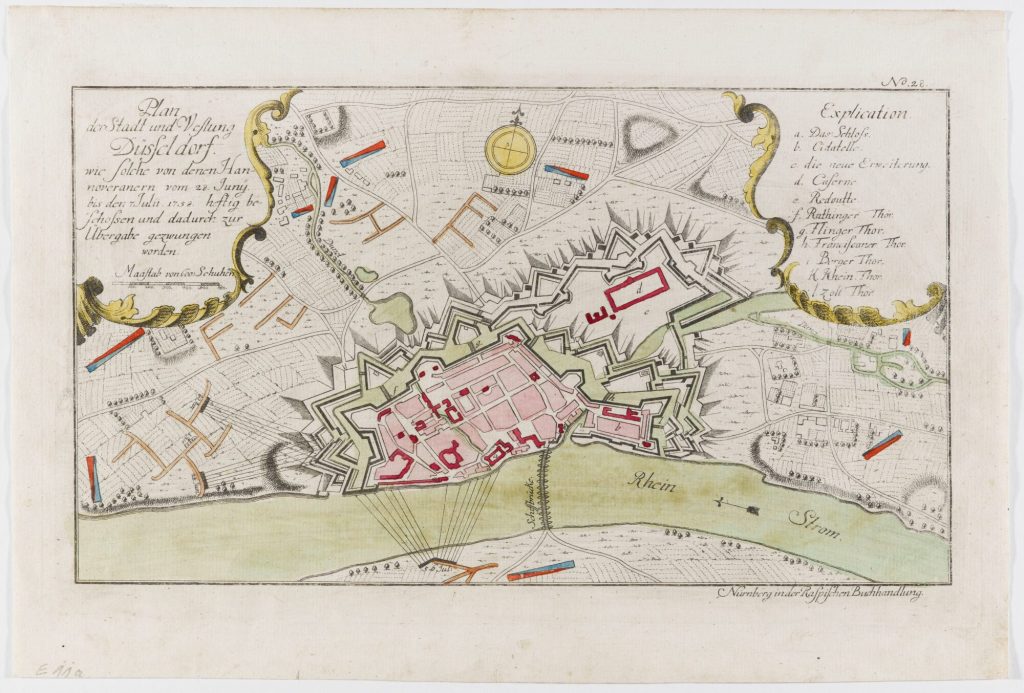 No. 28.
Plan
der Stadt und Vestung
Düsseldorf
wie solche von denen Han-
noveranern vom 28. Juny
bis den 7 Julii 1758. hefftig be-
schossen und dadurch zur
Übergabe gezwungen
worden.
Maastab von 600 Schuhen
Explication
a. Das Schloss.
b. Citatelle.
c. die neue Erweiterung.
d. Caserne
e. Redoutte
f. Rattinger Thor
g. Flinger Thor.
h. Franciscaner Thor
i. Berger Thor.
k. Rhein Thor
l. Zoll Thor
d
c
b
g
Schifbrücke
Rhein
Strom.
Nürnberg in der Raspischen Buchhandlung.
E 11a